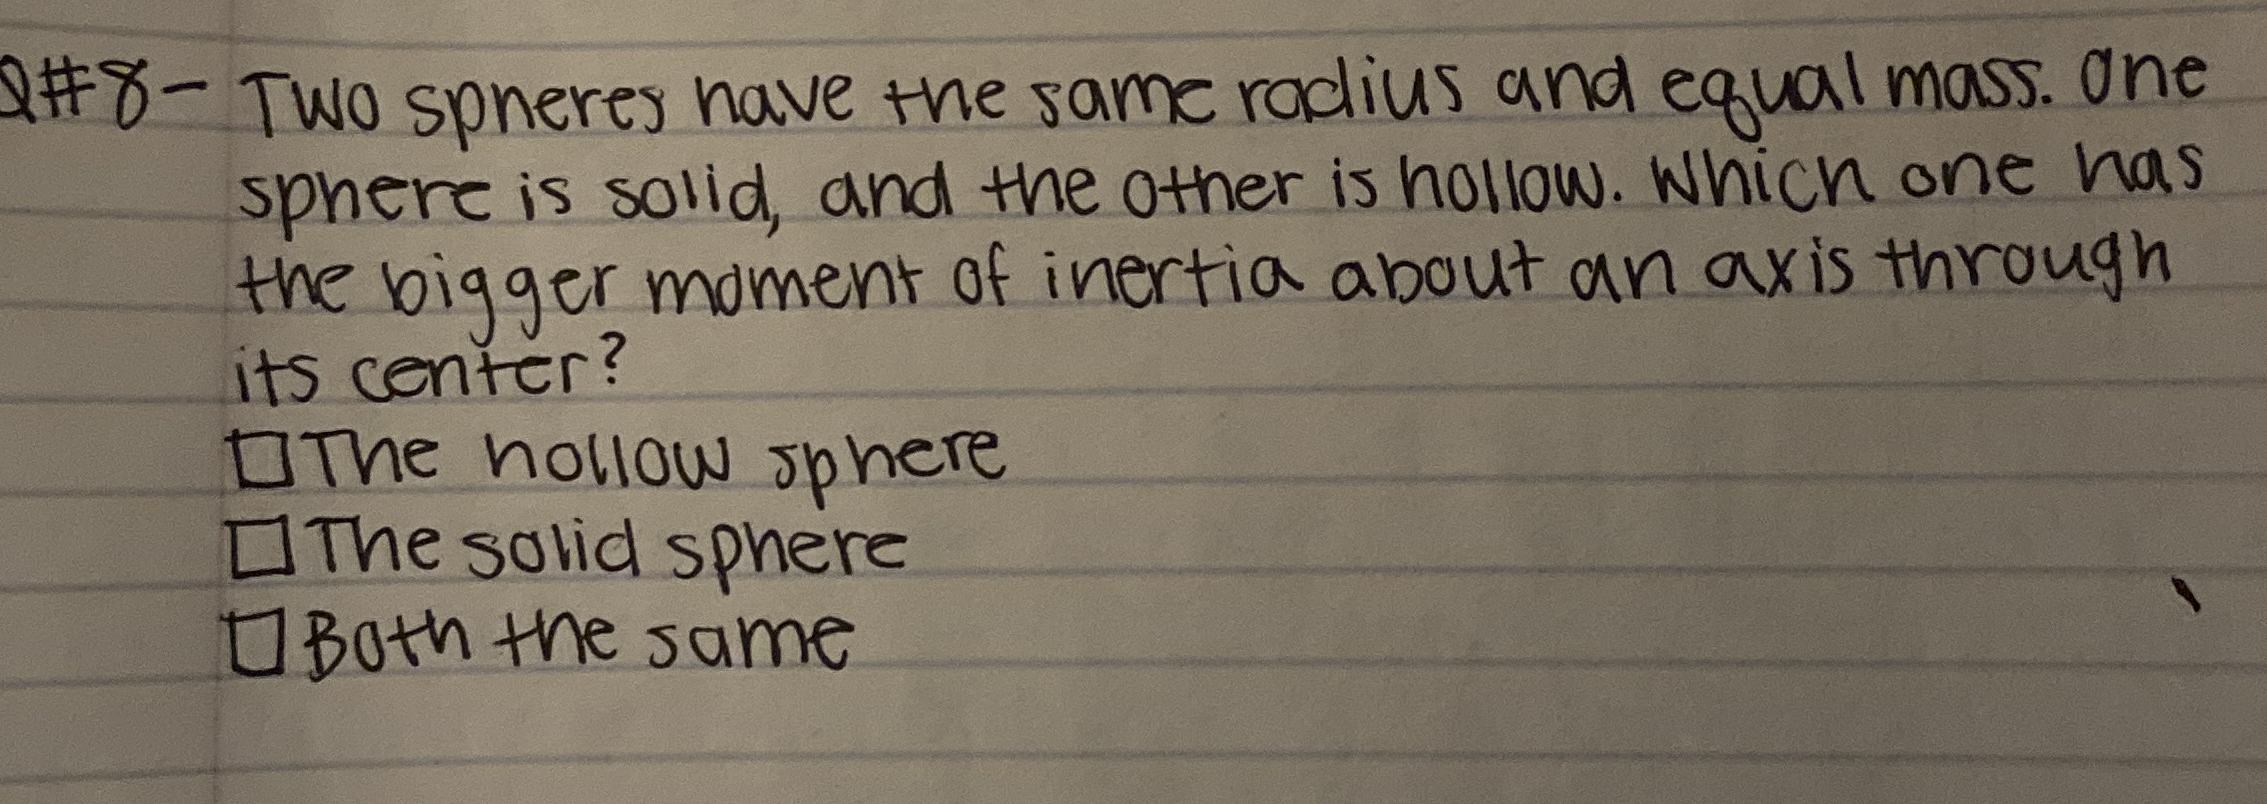 Q#8- Two spheres have the same radius and equal mass. One
sphere is solid, and the other is hollow. Which one has
the bigger moment of inertia about an axis through
its center?
□ The hollow sphere
□ The solid sphere
□ Both the same